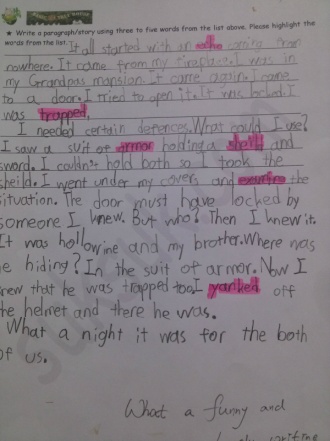 ★ Write a paragraph/story using three to five words from the list above. Please highlight the
words from the list.
It all started with an echo coming from
nowhere. It came from my firaplace. I was in
my Grandpas mansion. It came again. I came
to a door. I tried to open it. It was locked. I
was trapped.
I needed certain defences. What could I use?
I saw a suit of armor holding a sheild and
sword. I couldn't hold both so I took the
sheild. I went under my covers and the
situation. The door must have locked by
someone I knew. But who? Then I knew it.
It was hollowine and my brother. Where was
e hiding? In the suit of armor. Now I
knew that he was trapped too. I yanked off
the helmet and there he was.
What a night it was for the both
of us.
What a funny and